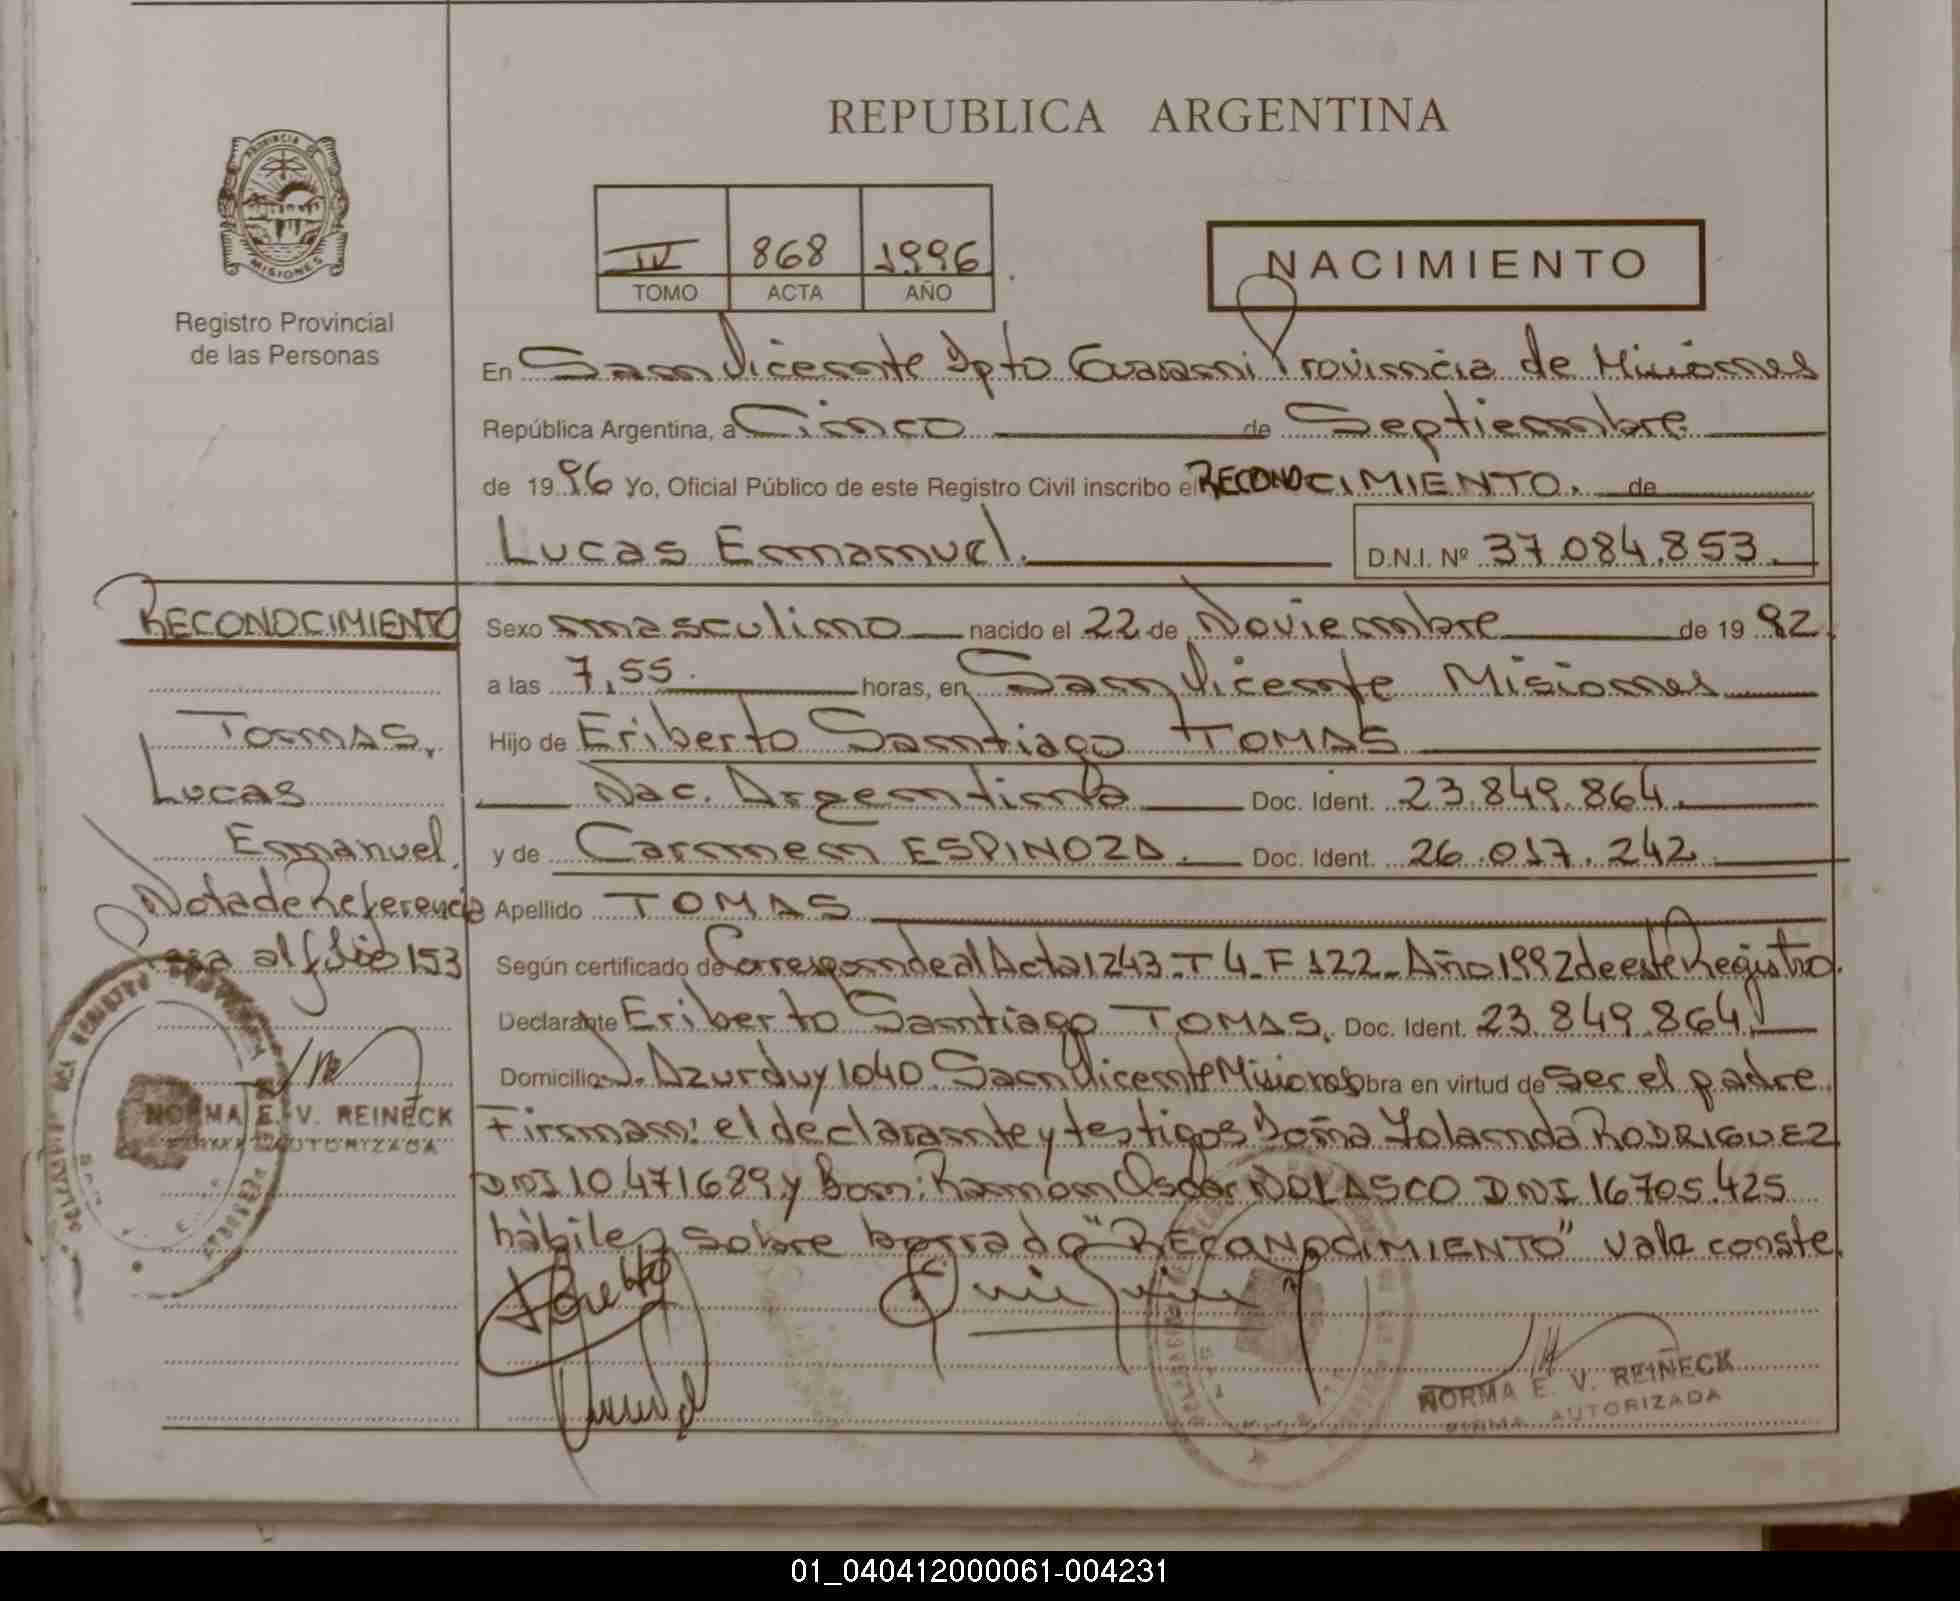 REPUBLICA ARGENTINA
PROVINCIA DE
MISIONES
Registro Provincial
de las Personas
IV 868 1996
TOMO ACTA AÑO
NACIMIENTO
En San Vicente Dpto Guarani Provincia de Misiones
República Argentina, a Cinco de Septiembre
de 1996 Yo, Oficial Público de este Registro Civil inscribo el RECONOCIMIENTO. de
Lucas Emmanuel. D.N.I. Nº 37.084.853.
RECONOCIMIENTO
Tomas,
Lucas
Emmanuel.
Nota de Referencia
al folio 153
NORMA E. V. REINECK
FIRMA AUTORIZADA
Sexo masculino nacido el 22 de Noviembre de 1992
a las 7,55. horas, en San Vicente Misiones
Hijo de Eriberto Santiago TOMAS
Nac. Argentina Doc. Ident. 23.849.864.
y de Carmen ESPINOZA. Doc. Ident. 26.017.242.
Apellido TOMAS
Según certificado de Corresponde al Acta 1243 - T 4 - F 122 - Año 1992 de este Registro.
Declarante Eriberto Santiago TOMAS. Doc. Ident. 23.849.864
Domicilio J. Azurduy 1040 San Vicente Misiones Obra en virtud de Ser el padre
Firman: el declarante y testigos Doña Yolanda RODRIGUEZ
DNI 10.471689 y Don: Ramon Oscar NOLASCO DNI 16705.425
hàbiles sobre borrado "RECONOCIMIENTO" Vale conste.
NORMA E. V. REINECK
FIRMA AUTORIZADA
01_040412000061-004231